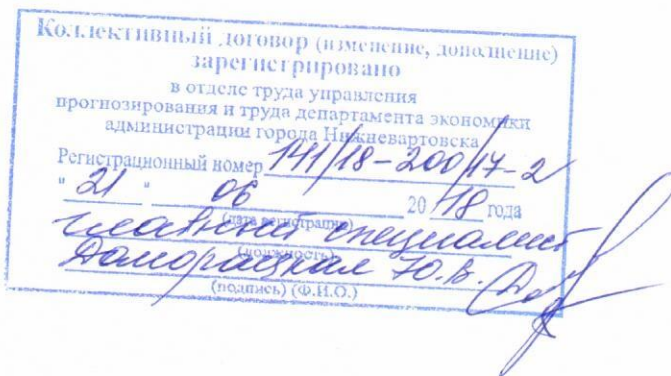 Коллективный договор (изменение, дополнение)
зарегистрировано
в отделе труда управления
прогнозирования и труда департамента экономики
администрации города Нижневартовска
Регистрационный номер 141/18-200/17-2
" 21 " 06 2018 года
(дата регистрации)
главный специалист
(должность)
Ю.В.
(подпись) (Ф.И.О.)